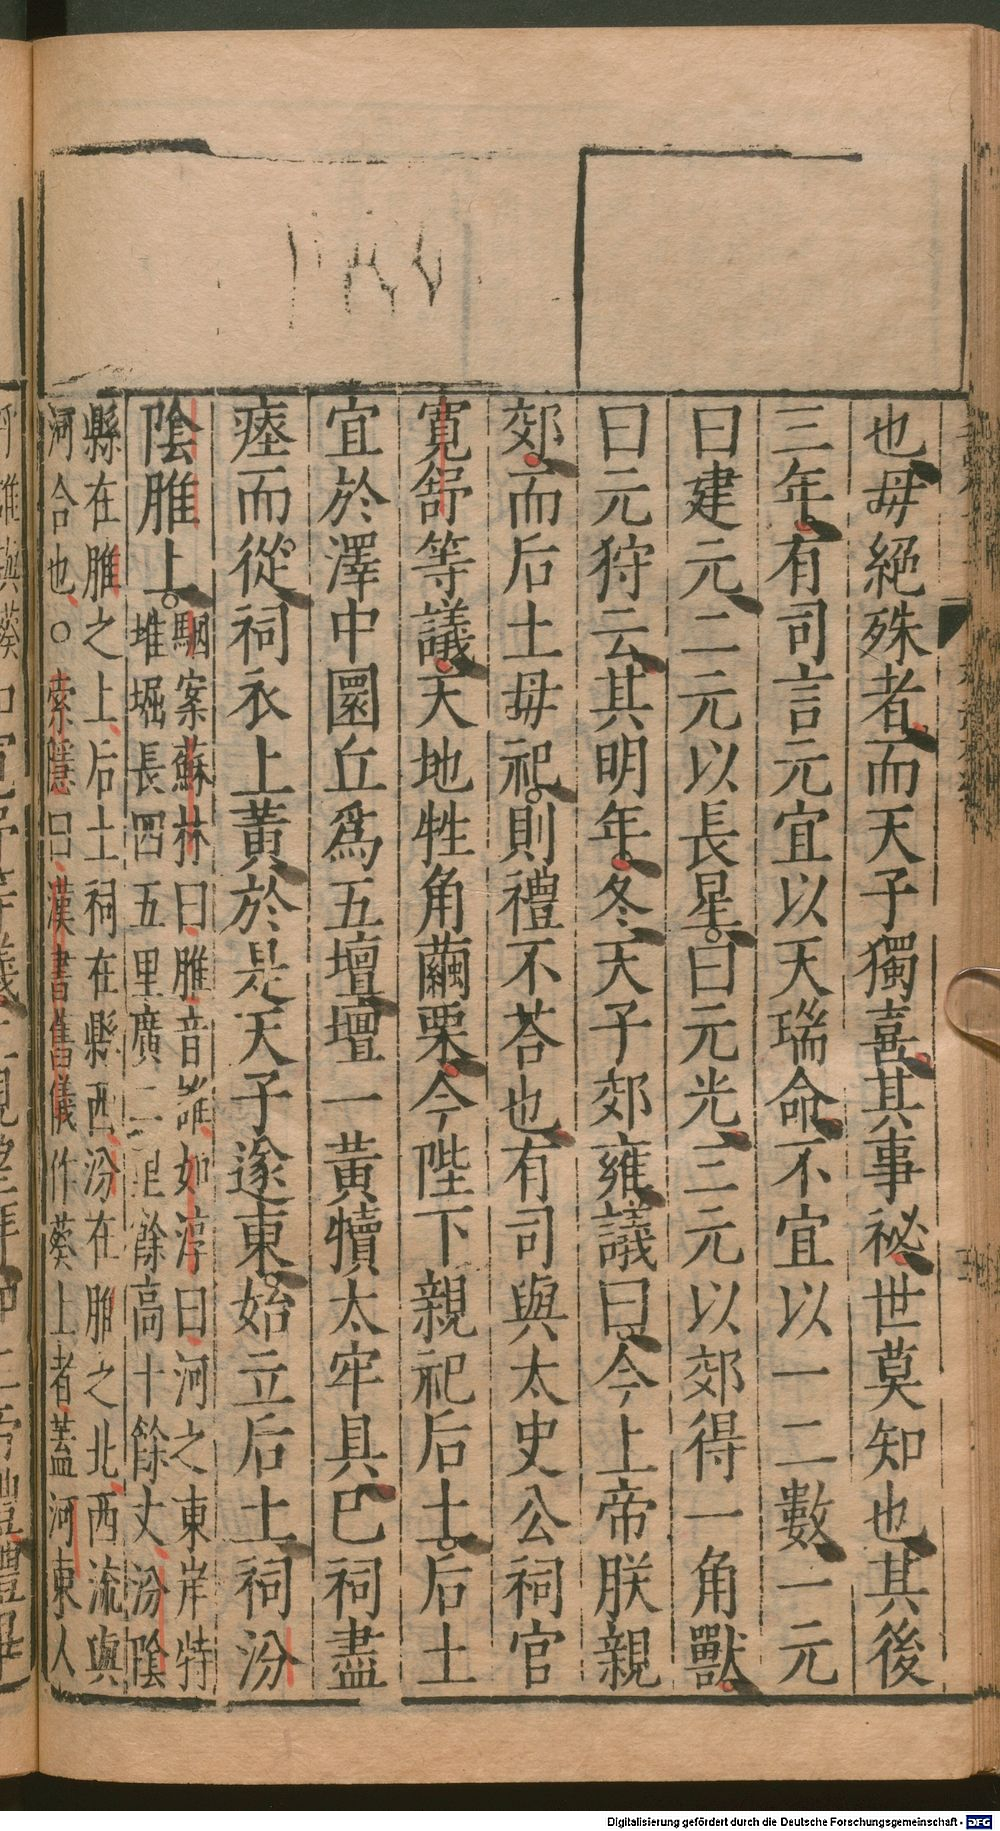 也毋絕殊者而天子獨喜其事祕世莫知也其後
三年有司言元宜以天瑞命不宜以一二數一元
曰建元二元以長星曰元光三元以郊得一角獸
曰元狩云其明年冬天子郊雍議曰今上帝朕親
郊而后土毋祀則禮不荅也有司與太史公祠官
寬舒等議天地牲角繭栗今陛下親祀后土后土
宜於澤中圜丘爲五壇壇一黃犢太牢具已祠盡
瘞而從祠衣上黃於是天子遂東始立后土祠汾
陰脽上
駰案蘇林曰脽音誰如淳曰河之東岸特
堆堀長四五里廣二里餘高十餘丈汾陰
縣在脽之上后土祠在縣西汾在脽之北西流與
河合也○索隱曰漢書舊儀作葵上者蓋河東人
Digitalisierung gefördert durch die Deutsche Forschungsgemeinschaft - DFG